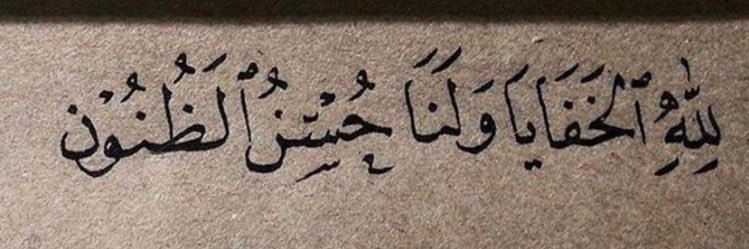 لِلَّهِ ٱلْخَفَايَا وَلَنَا حُسْنُ ٱلظُنُوْن